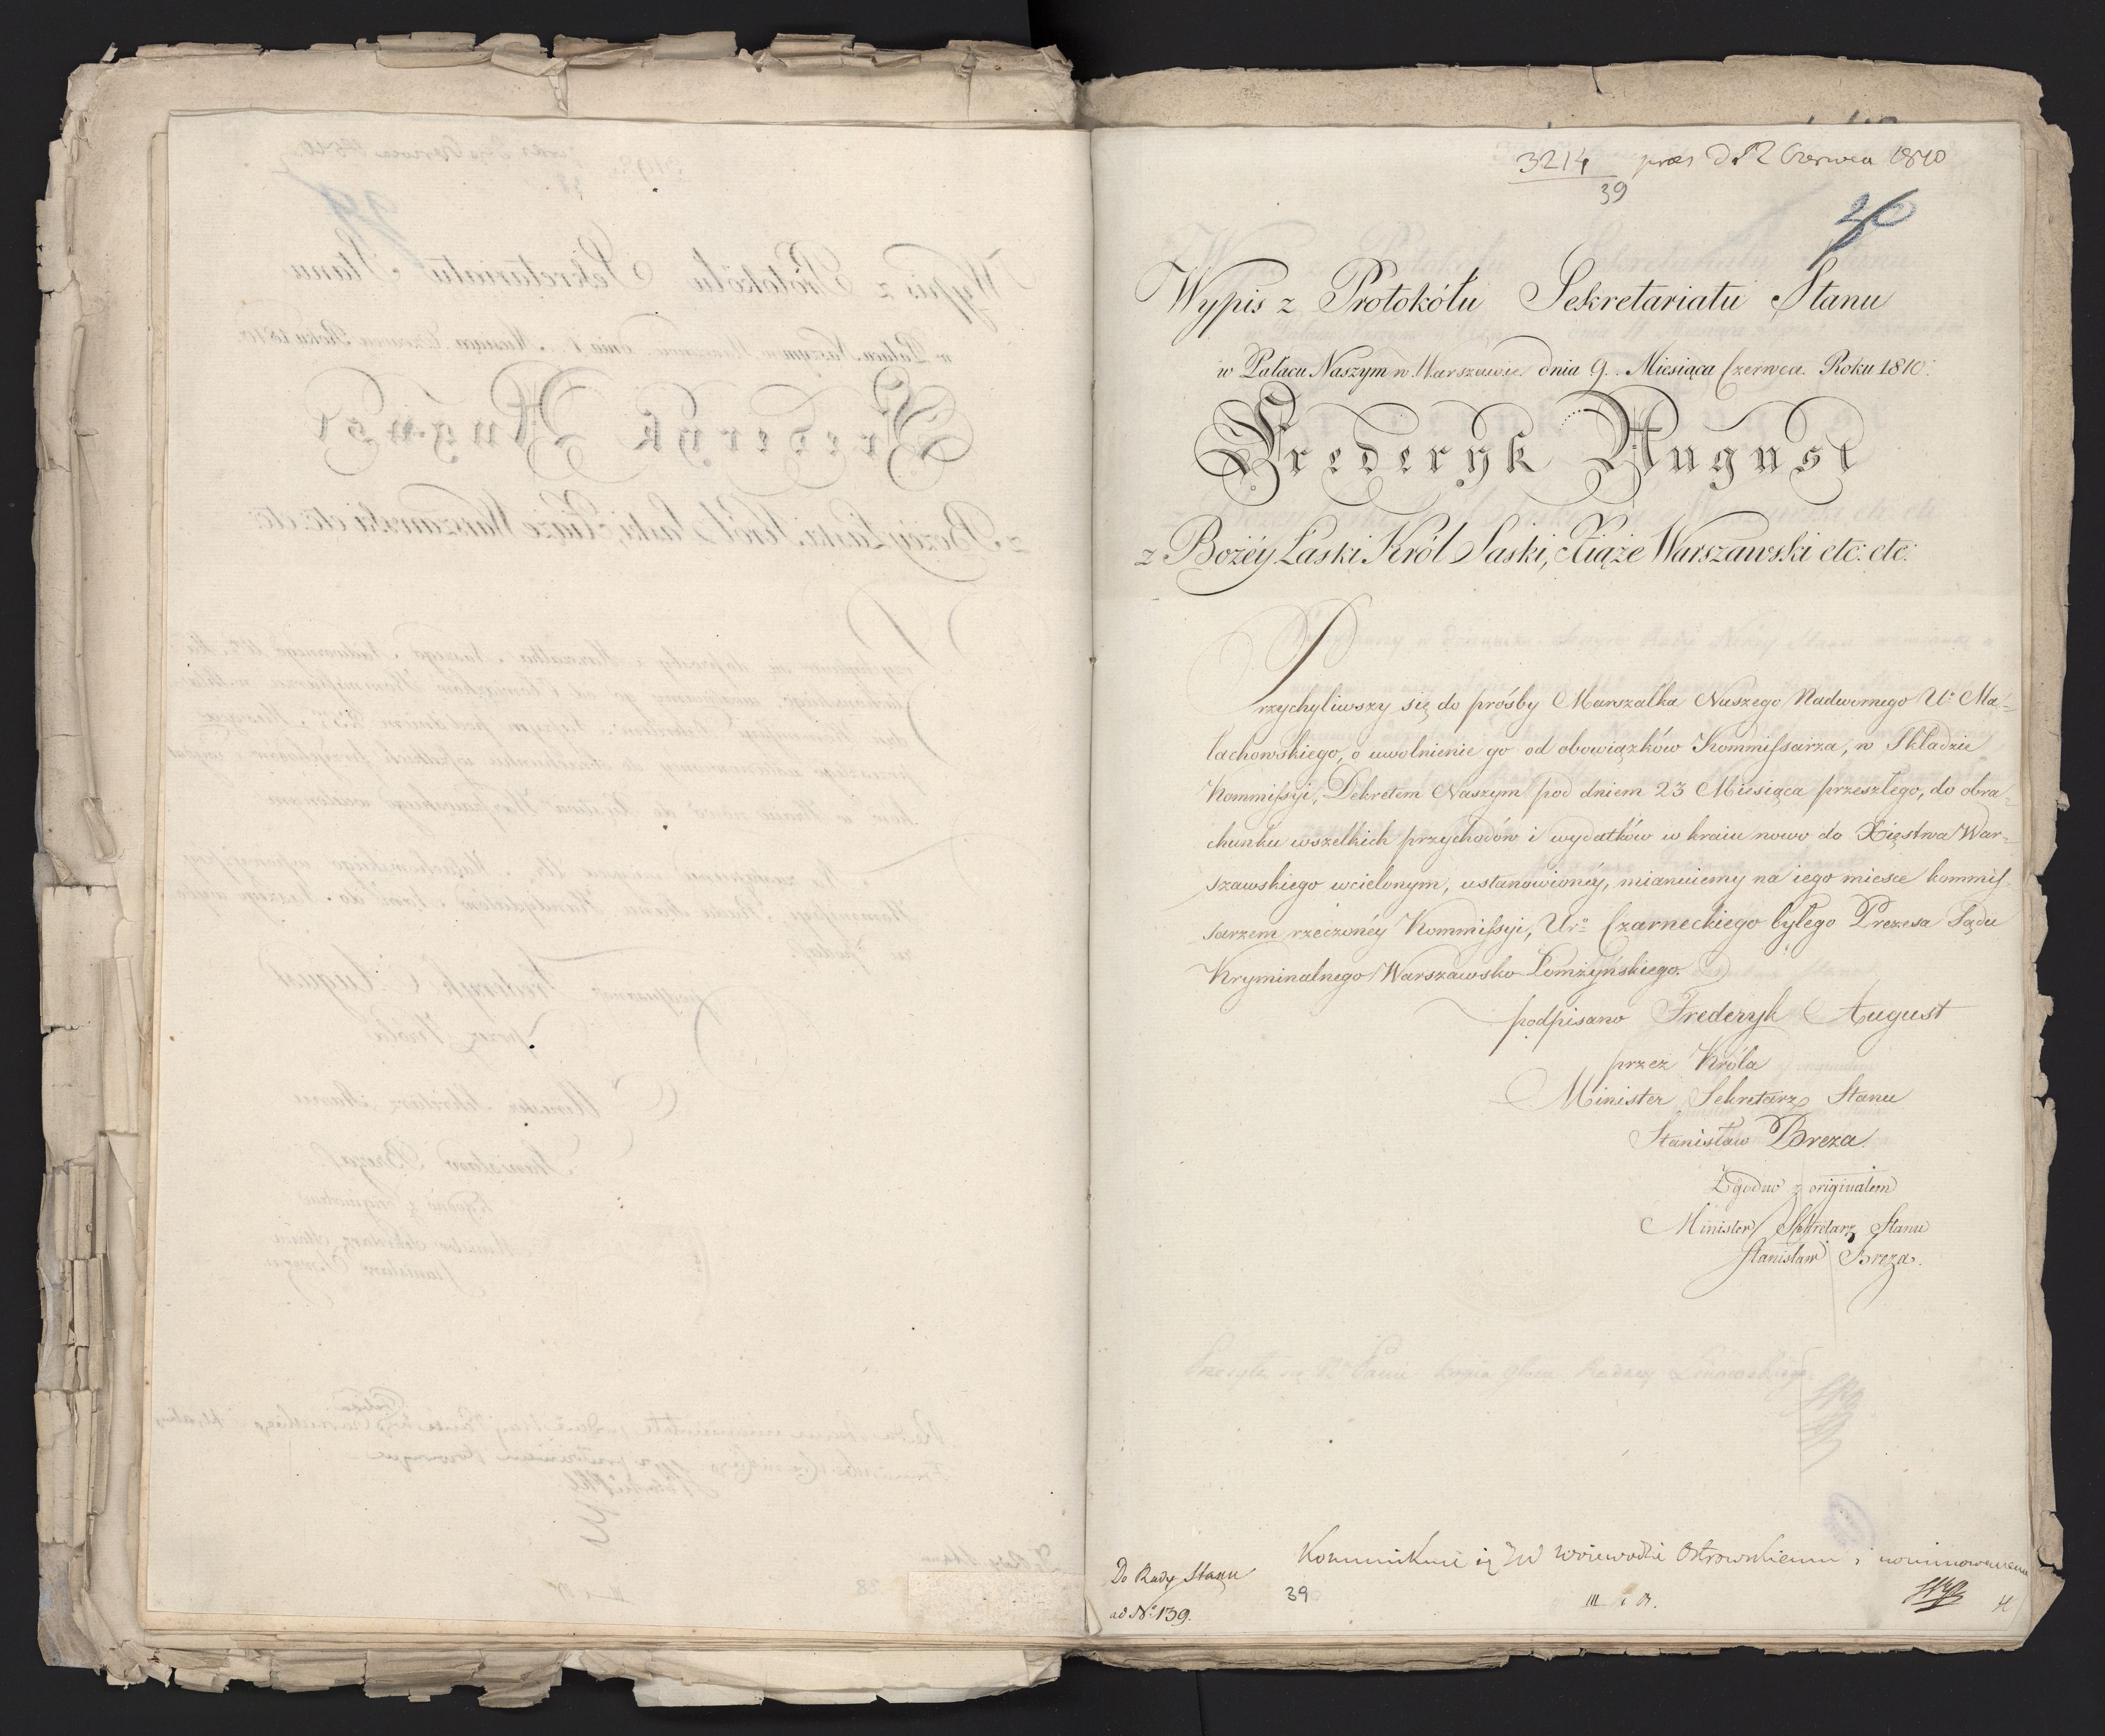 3214 præs d 12 Czerwca 1810
39
Wypis z Protokółu Sekretariatu Stanu
w Pałacu Naszym w Warszawie dnia 9. Miesiąca Czerwca. Roku 1810.
Frederyk August
z Bożéy Łaski Król Saski, Xiąże Warszawski etc: etc:
Przychyliwszy się do prośby Marszałka Naszego Nadwornego Ur Ma-
łachowskiego, o uwolnienie go od obowiązków Kommissarza, w Składzie
Kommissyi, Dekretem Naszym pod dniem 23 Miesiąca przeszłego, do obra-
chunku wszelkich przychodów i wydatków w kraiu nowo do Xięstwa War-
szawskiego wcielonym, ustanowionéy, mianuiemy na iego miesce kommis-
sarzem rzeczonéy Kommissyi, Uro Czarneckiego byłego Prezesa Sądu
Kryminalnego Warszawsko-Łomżyńskiego.
podpisano Frederyk August
przez Króla
Minister Sekretarz Stanu
Stanisław Breza
Zgodno z originałem
Minister Sekretarz Stanu
Stanisław Breza.
Komunikuie się JW Woiewodzie Ostrowskiemu i nominowanemu
Do Rady Stanu
39
ad No 139.